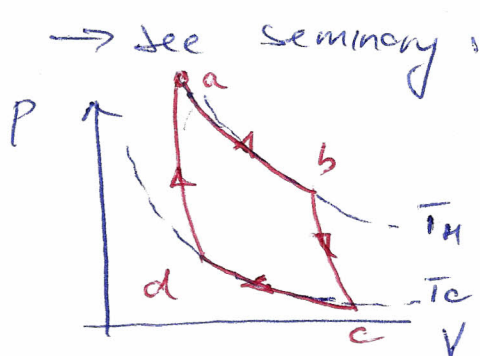 → see seminary
a
P
b
T_H
d
T_C
c
V